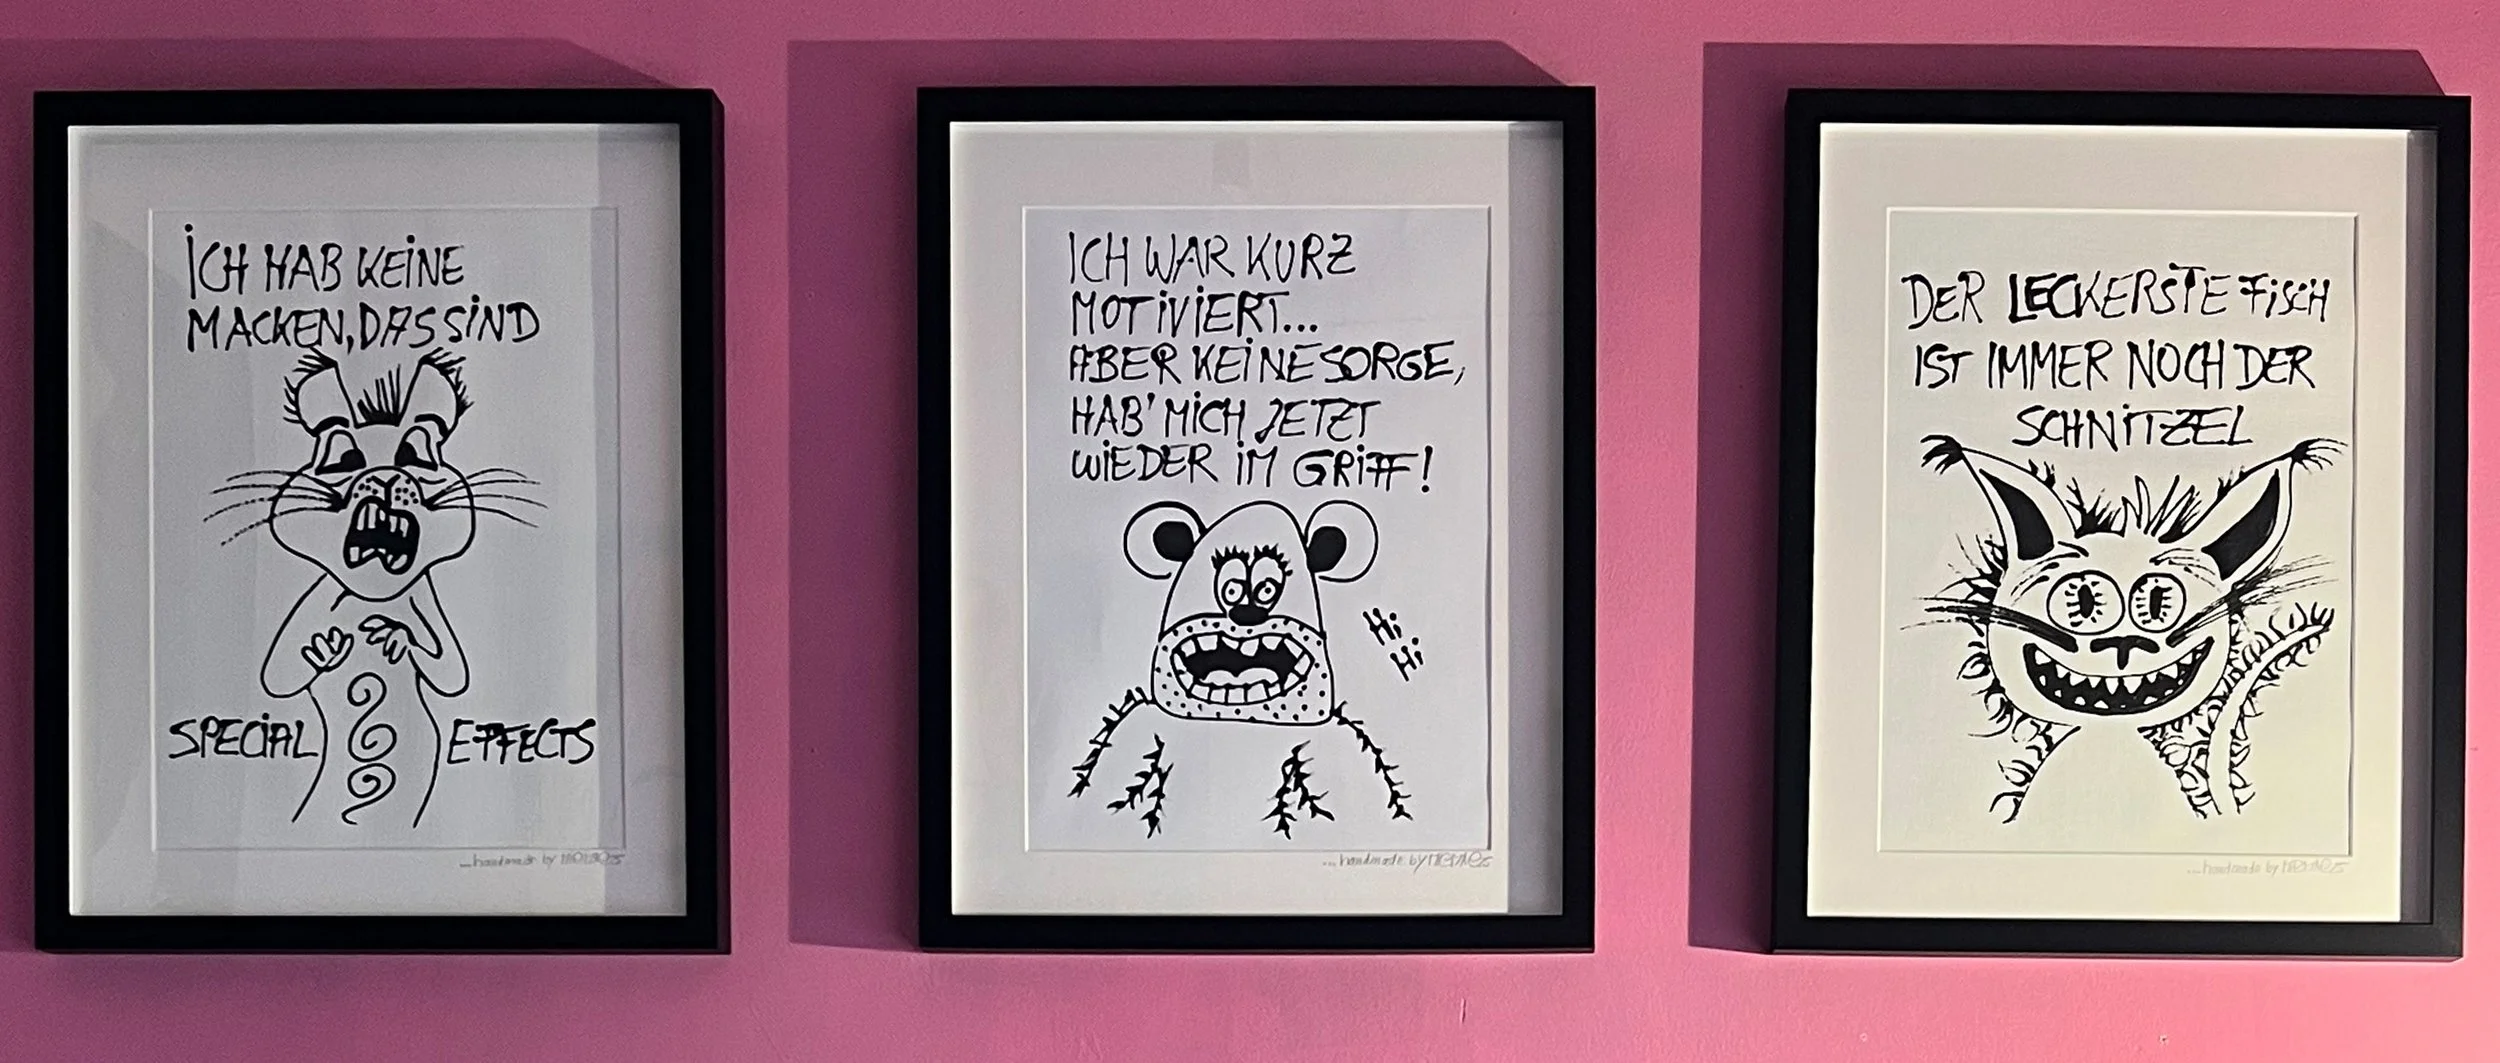 ICH HAB KEINE
MACKEN, DAS SIND
SPECIAL EFFECTS
...handmade by
ICH WAR KURZ
MOTIVIERT...
ABER KEINE SORGE,
HAB' MICH JETZT
WIEDER IM GRIFF!
Hi
Hi
...handmade by
DER LECKERSTE FISCH
IST IMMER NOCH DER
SCHNITZEL
...handmade by